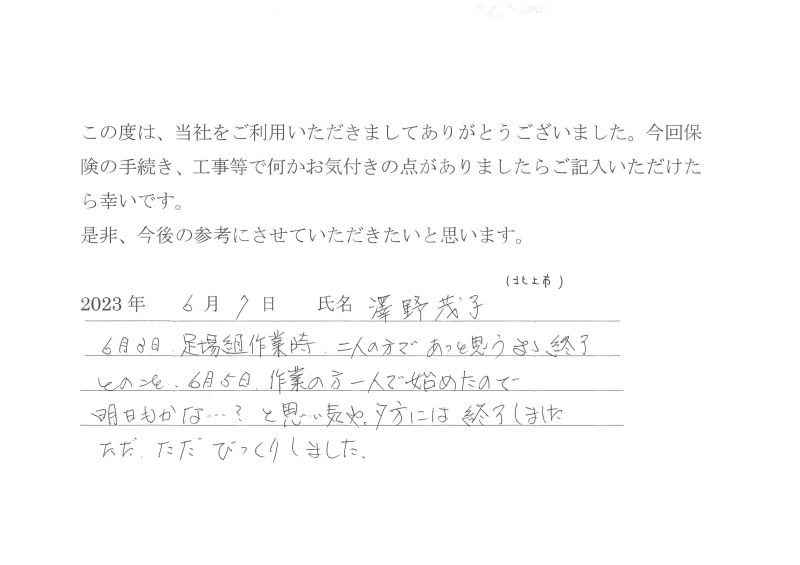 この度は、当社をご利用いただきましてありがとうございました。今回保
険の手続き、工事等で何かお気付きの点がありましたらご記入いただけた
ら幸いです。
是非、今後の参考にさせていただきたいと思います。
(北上市)
2023年 6月 7日 氏名 澤野茂子
6月 日、足場組作業時、二人の方で あっと思うまに終了
6月5日、作業の方一人で始めたので
明日もかな…? と思い 夕方には 終了しました
ただ、ただ びっくりしました。